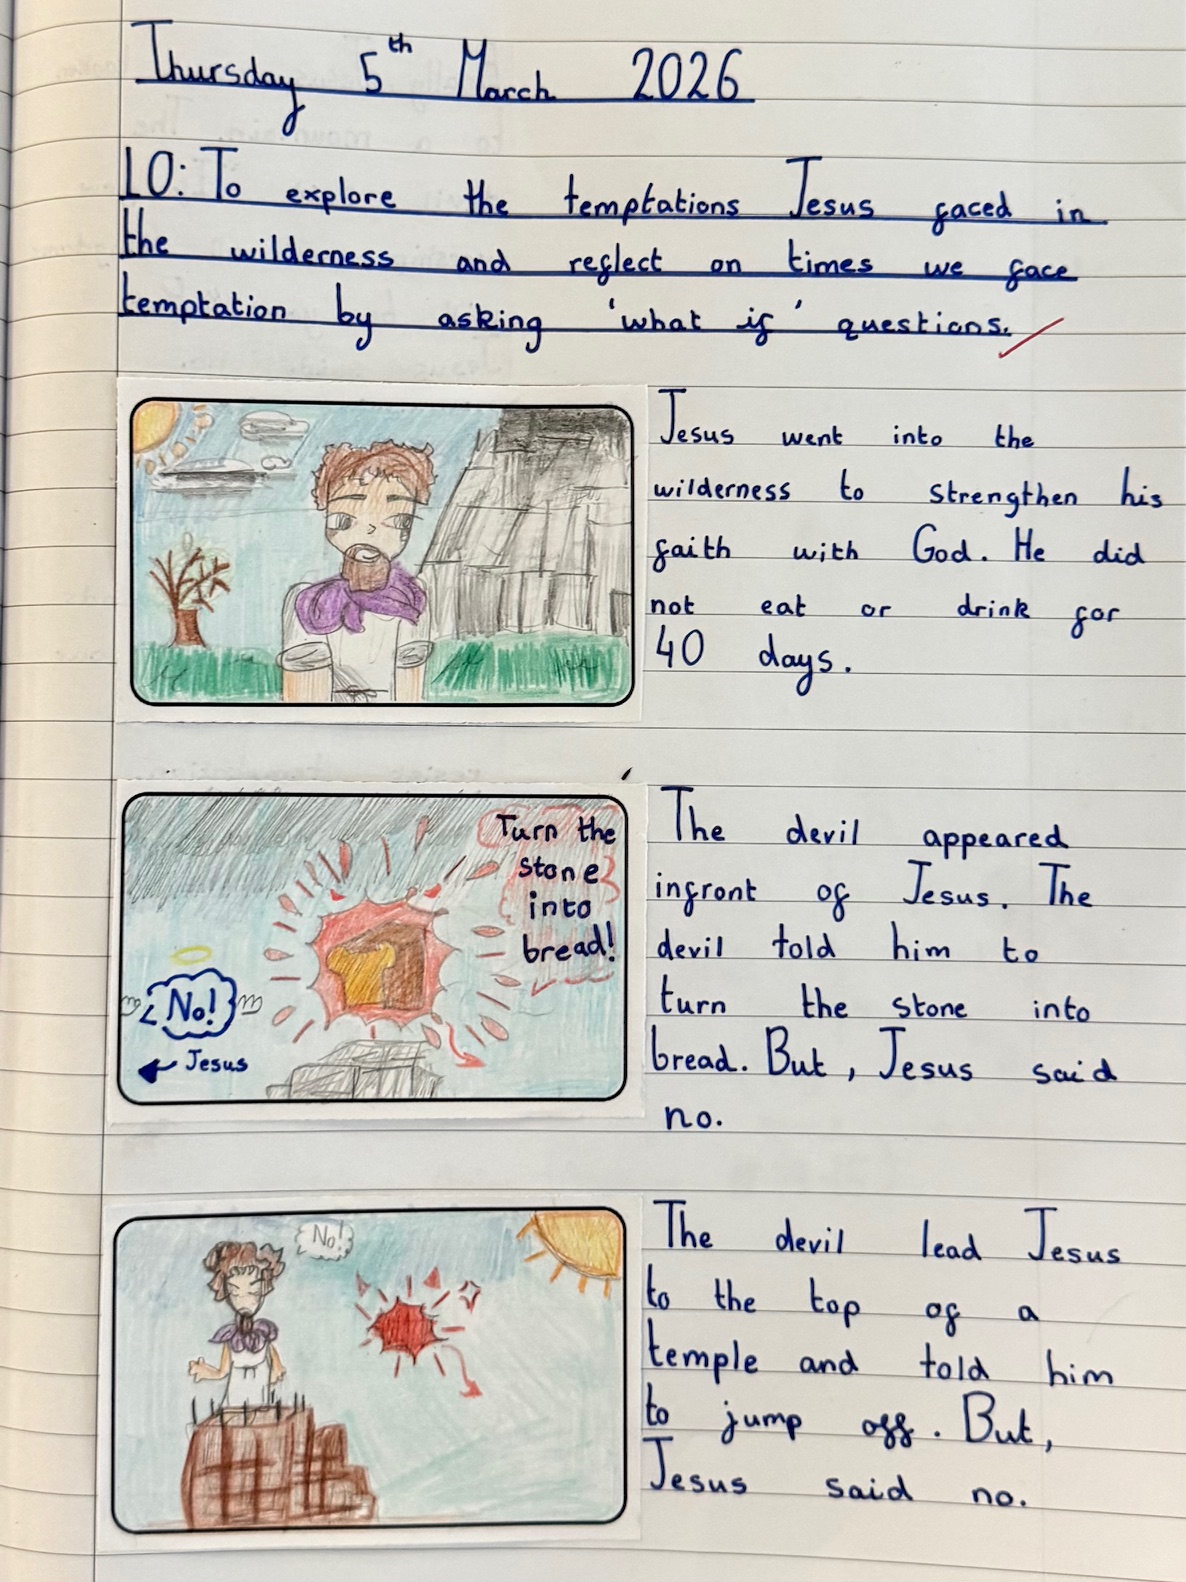 Thursday 5th March 2026
LO: To explore the temptations Jesus faced in
the wilderness and reflect on times we face
temptation by asking 'what if' questions.
Jesus went into the
wilderness to strengthen his
faith with God. He did
not eat or drink for
40 days.
Turn the
stone
into
bread!
No!
Jesus
The devil appeared
infront of Jesus. The
devil told him to
turn the stone into
bread. But, Jesus said
no.
No!
The devil lead Jesus
to the top of a
temple and told him
to jump off. But,
Jesus said no.